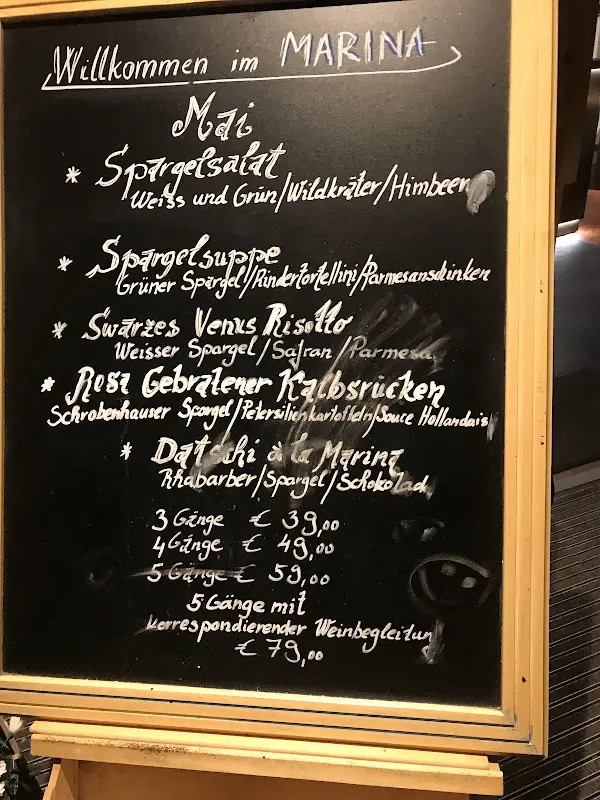 Willkommen im MARINA
Mai
* Spargelsalat
Weiss und Grün/Wildkräter/Himbeer
* Spargelsuppe
Grüner Spargel/Rindertortellini/Parmesanschinken
* Swarzes Venus Risotto
Weisser Spargel/Safran/Parmesa
* Rosa Gebratener Kalbsrücken
Schrobenhauser Spargel/Petersilienkartoffeln/Sauce Hollandais
* Datschi a la Marina
Rhabarber/Spargel/Schokolad
3 Gänge € 39,00
4 Gänge € 49,00
5 Gänge € 59,00
5 Gänge mit
korrespondierender Weinbegleitun
€ 79,00